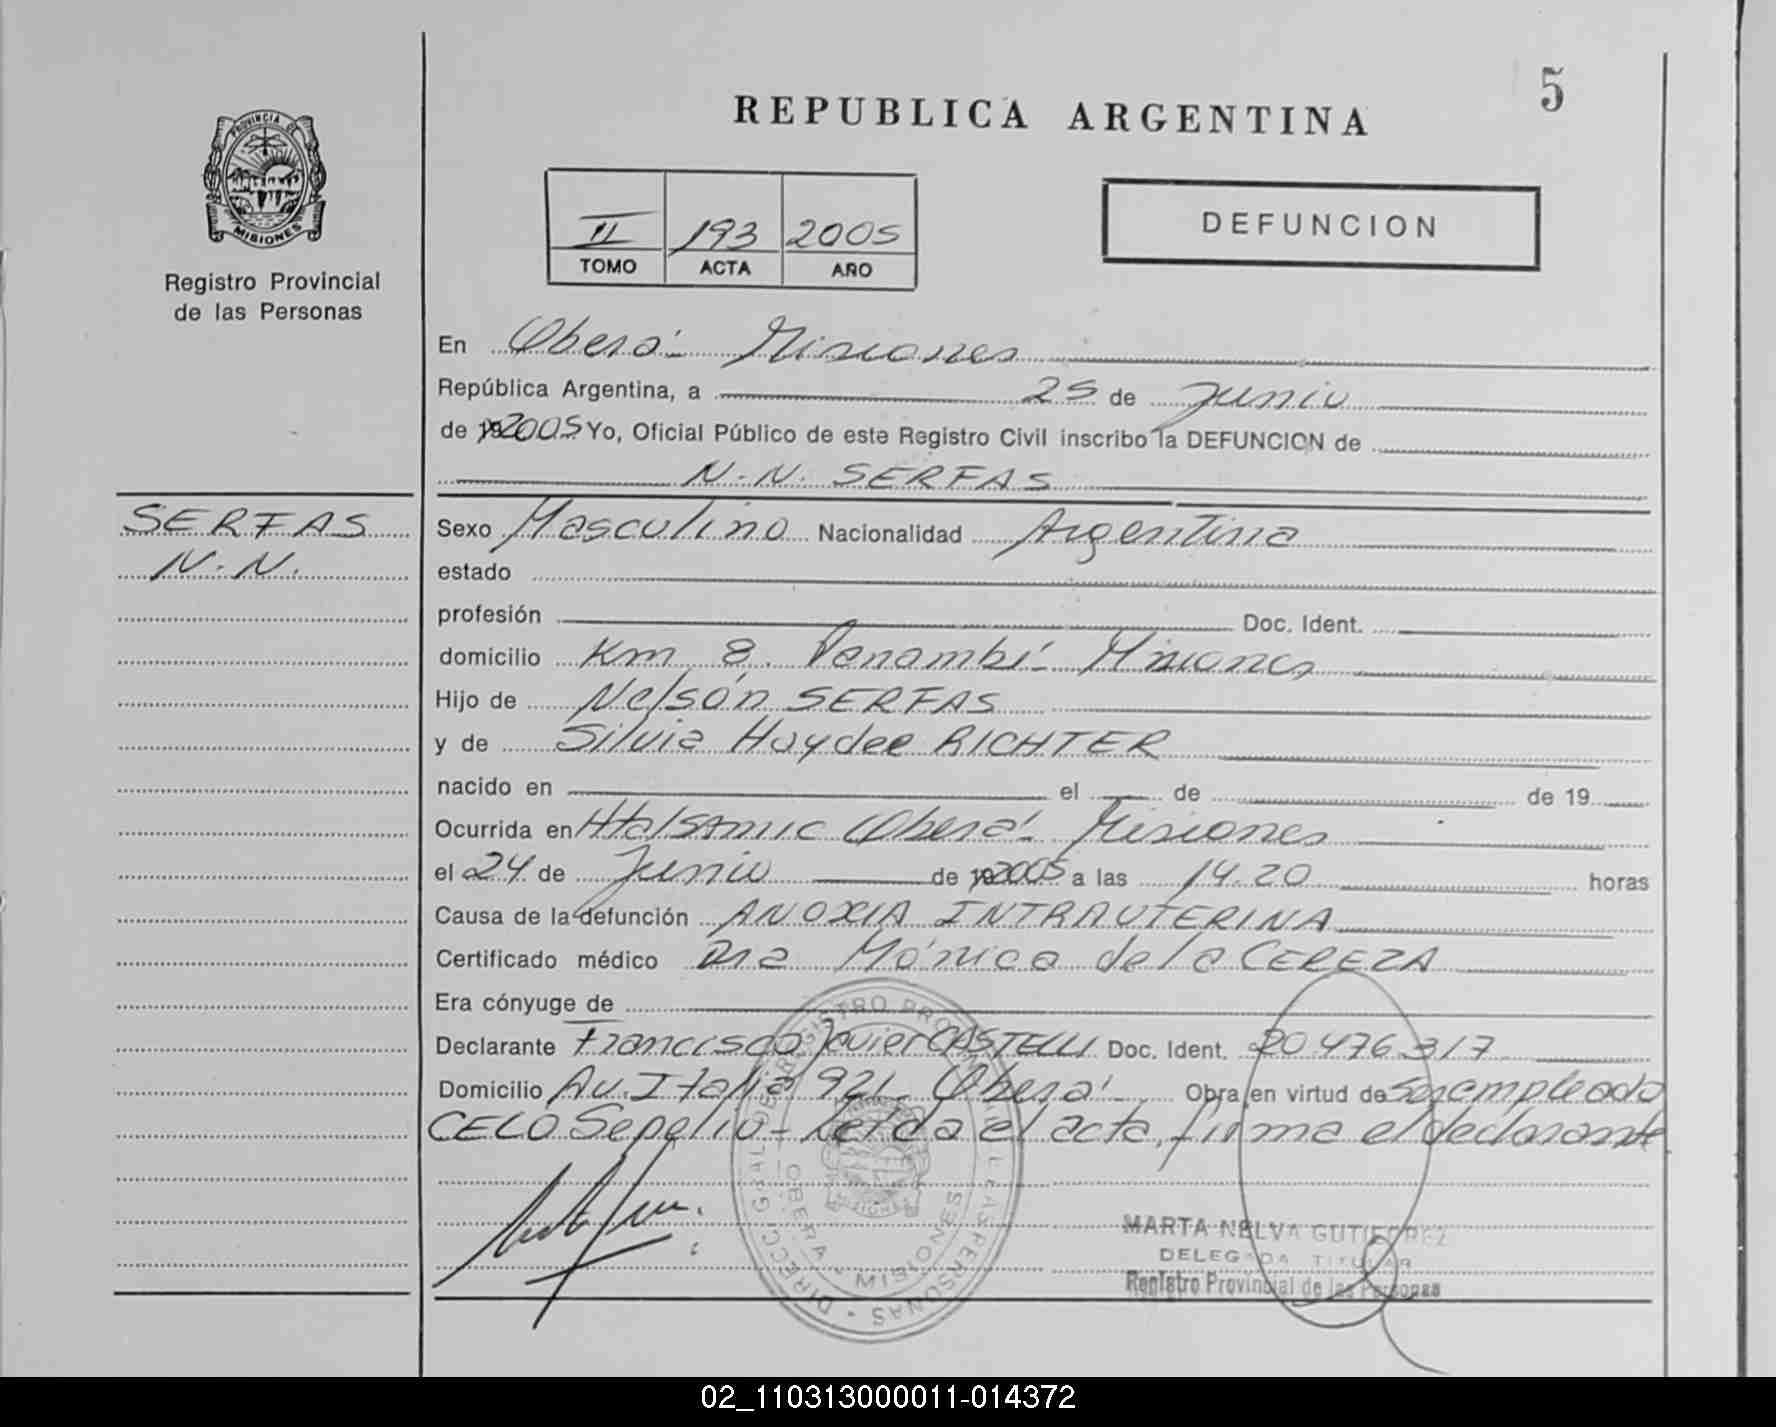 5
REPUBLICA ARGENTINA
PROVINCIA DE
MISIONES
Registro Provincial
de las Personas
II 193 2005
TOMO ACTA AÑO
DEFUNCION
En Oberá - Misiones
República Argentina, a 25 de Junio
de 19 2005 Yo, Oficial Público de este Registro Civil inscribo la DEFUNCION de
N.N. SERFAS
SERFAS
N.N.
Sexo Masculino Nacionalidad Argentina
estado
profesión Doc. Ident.
domicilio Km 8. Panambí - Misiones
Hijo de Nelsón SERFAS
y de Silvia Haydee RICHTER
nacido en el de de 19
Ocurrida en Oberá - Misiones
el 24 de Junio de 19 2005 a las 14.20 horas
Causa de la defunción ANOXIA INTRAUTERINA
Certificado médico Dra Mónica de la CEREZA
Era cónyuge de
Declarante Francisco Javier CASTELLI Doc. Ident. 20.476.317
Domicilio Av. Italia 921 - Oberá - Obra en virtud de ser empleado
CELO Sepelio - Leída el acta, firma el declarante
DIRECC. GRAL. DE REGISTRO PROVINCIAL DE LAS PERSONAS
OBERA - MISIONES
MARTA NELVA GUTIERREZ
DELEGADA TITULAR
Registro Provincial de las Personas
02_110313000011-014372